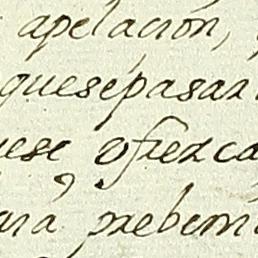 apelacion,
quesepasar
ese ofrezca
ara prebem